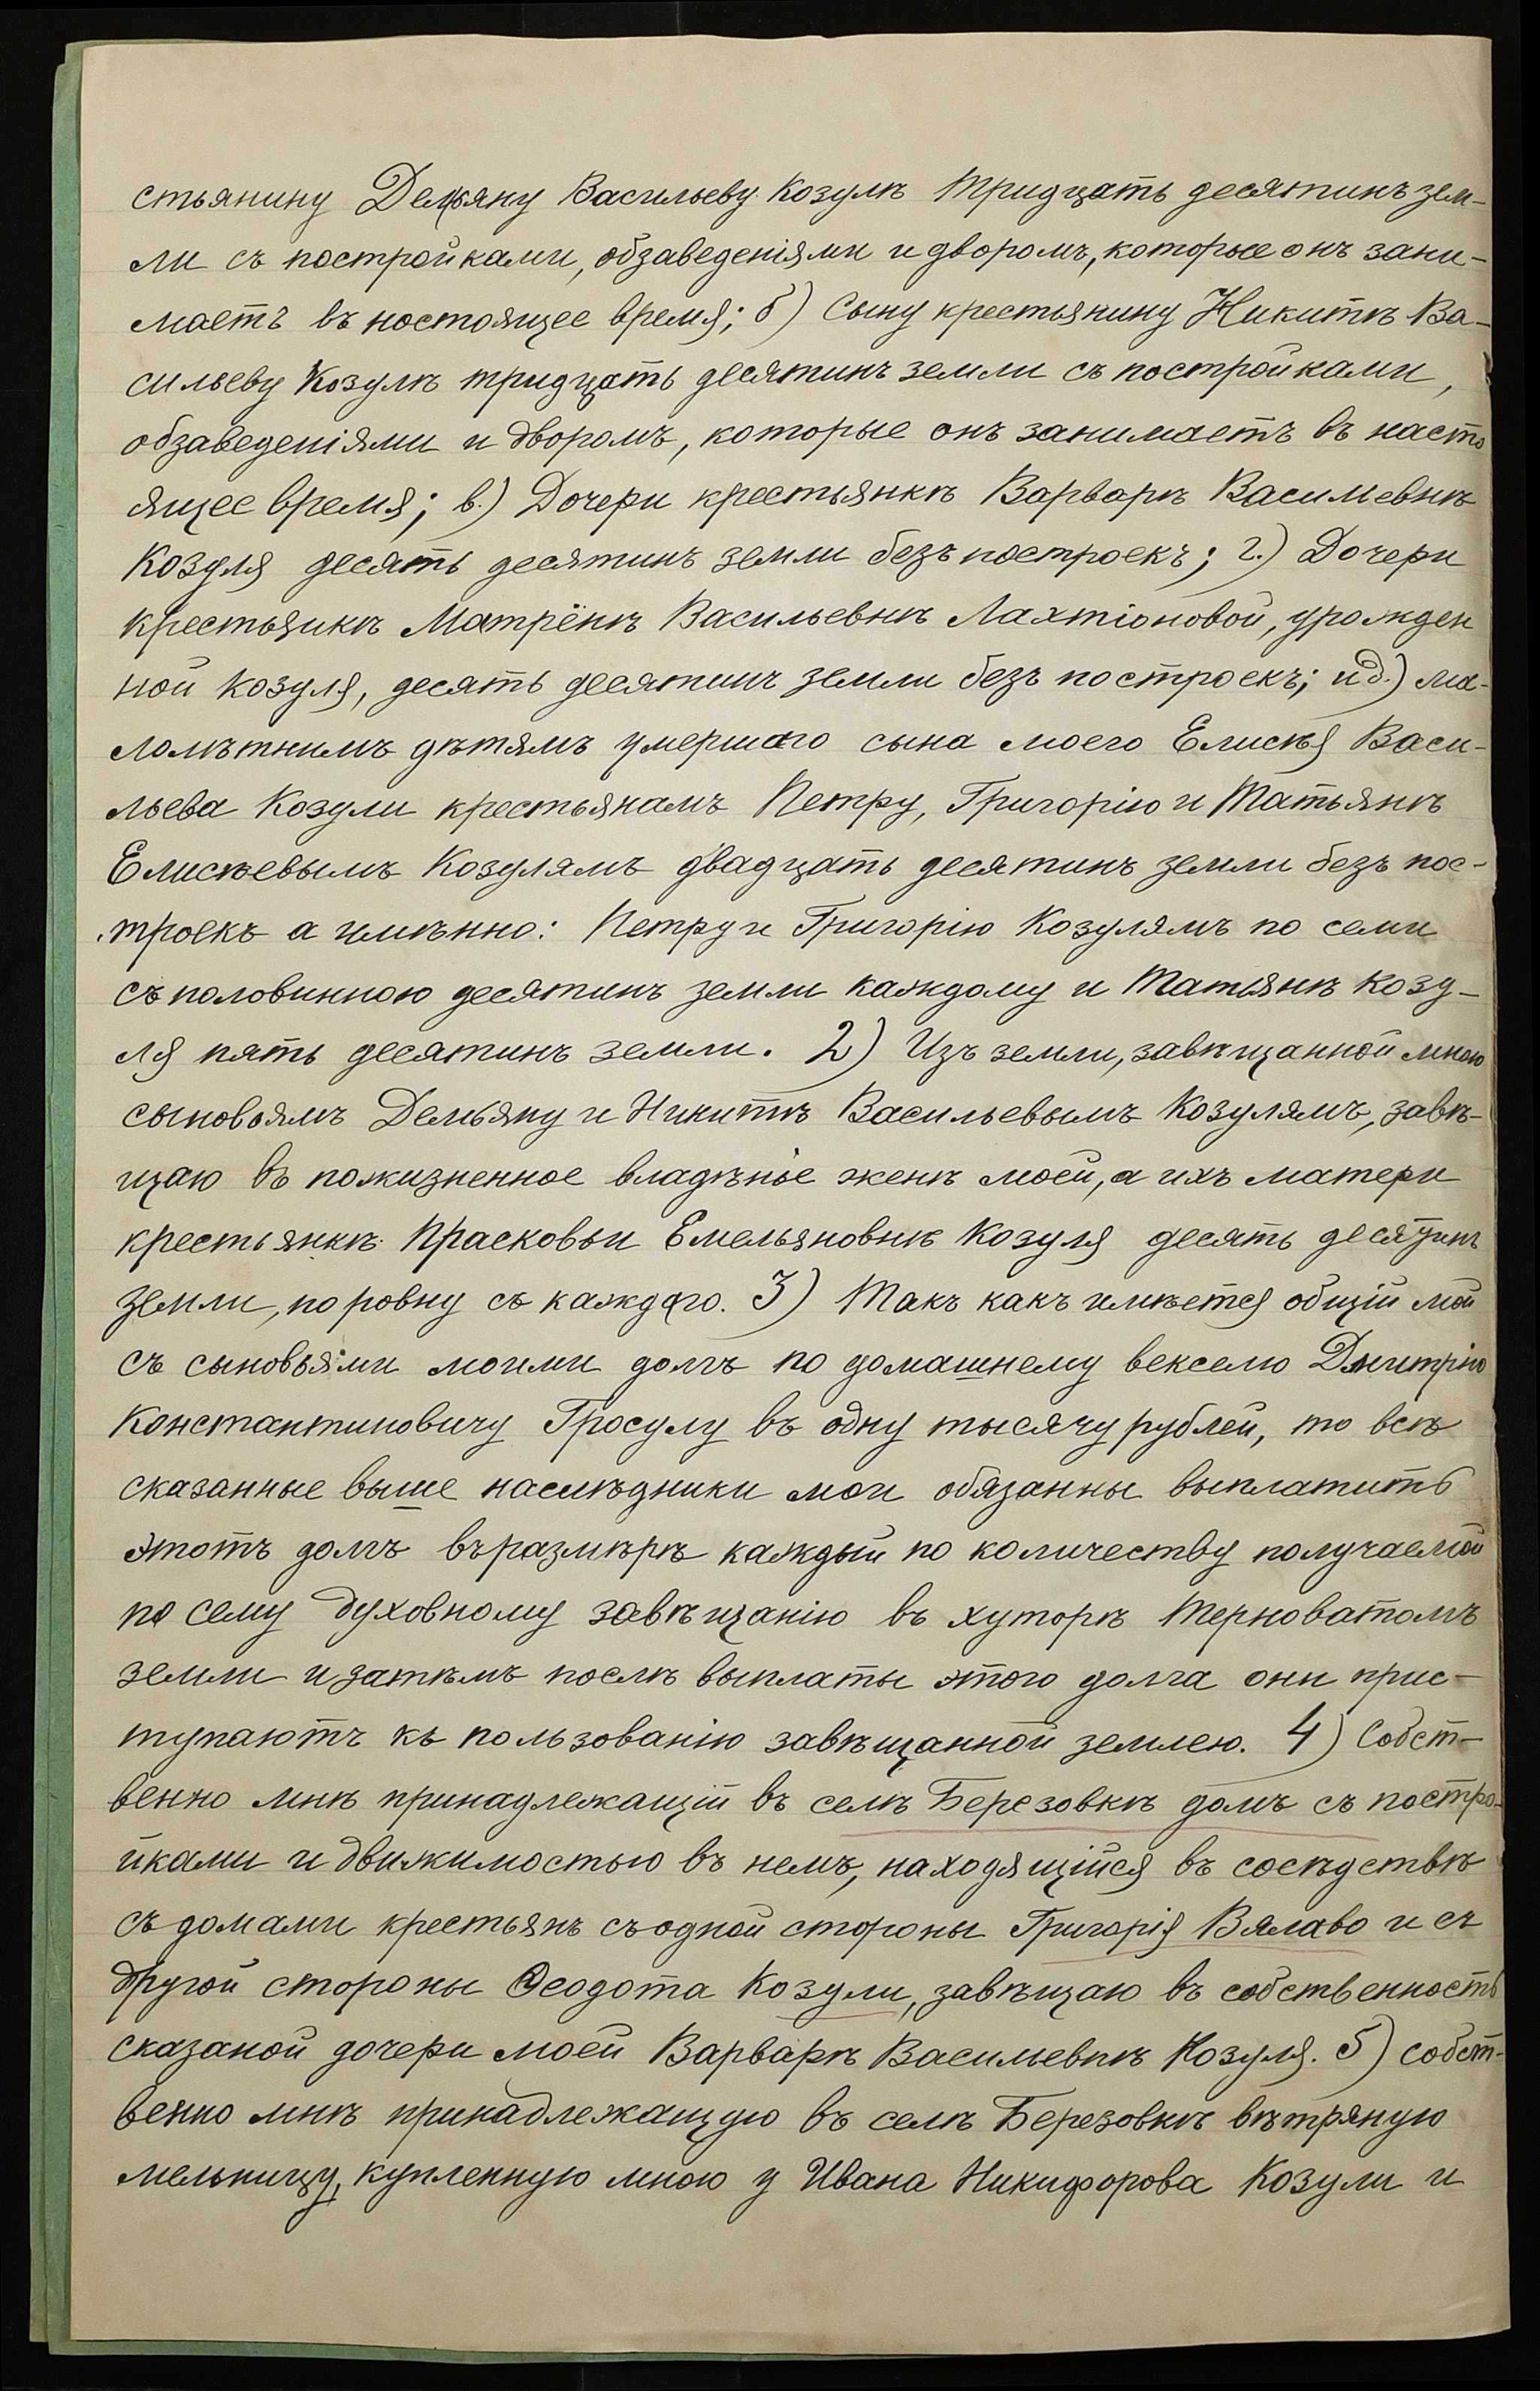 стьянину Демьяну Васильеву Козулѣ тридцать десятинъ зем-
ли съ постройками, обзаведеніями и дворомъ, которые онъ зани-
маетъ въ ностоящее время; б) Сыну крестьянину Никитѣ Ва-
сильеву Козулѣ тридцать десятинъ земли съ постройками,
обзаведеніями и дворомъ, которые онъ занимаетъ въ насто
ящее время; в.) Дочери крестьянкѣ Варварѣ Васильевнѣ
Козуля десять десятинъ земли безъ построекъ; г.) Дочери
крестьянкѣ Матрёнѣ Васильевнѣ Лахтіоновой, урожден
ной Козуля, десять десятинъ земли безъ построекъ; и д.) ма-
лолѣтнимъ дѣтямъ умершаго сына моего Елисѣя Васи-
льева Козули крестьянамъ Петру, Григорію и Татьянѣ
Елисѣевымъ Козулямъ двадцать десятинъ земли безъ пос-
троекъ а имѣнно: Петру и Григорію Козулямъ по семи
съ половинною десятинъ земли каждому и Татьянѣ Козу-
ля пять десятинъ земли. 2) Изъ земли, завѣщанной мною
сыновьямъ Демьяну и Никитѣ Васильевымъ Козулямъ, завѣ-
щаю въ пожизненное владѣніе женѣ моей, а ихъ матери
крестьянкѣ Прасковьи Емельяновнѣ Козуля десять десятинъ
земли, поровну съ каждого. 3) Такъ какъ имѣется общій мой
съ сыновьями моими долгъ по домашнему векселю Дмитрію
Константиновичу Гросулу въ одну тысячу рублей, то всѣ
сказанные выше наслѣдники мои обязанны выплатить
этотъ долгъ въ размѣрѣ каждый по количеству получаемой
по сему духовному завѣщанію въ хуторѣ Терноватомъ
земли и затѣмъ послѣ выплаты этого долга они прис-
тупаютъ къ пользованію завѣщанной землею. 4) Собст-
венно мнѣ принадлежащій въ селѣ Березовкѣ домъ съ постро-
йками и движимостью въ немъ, находящійся въ сосѣдствѣ
съ домами крестьянъ съ одной стороны Григорія Вялаво и съ
другой стороны Ѳеодота Козули, завѣщаю въ собственность
сказаной дочери моей Варварѣ Васильевнѣ Козуля. 5) собст-
венно мнѣ принадлежащую въ селѣ Березовкѣ вѣтряную
мельницу, купленную мною у Ивана Никифорова Козули и